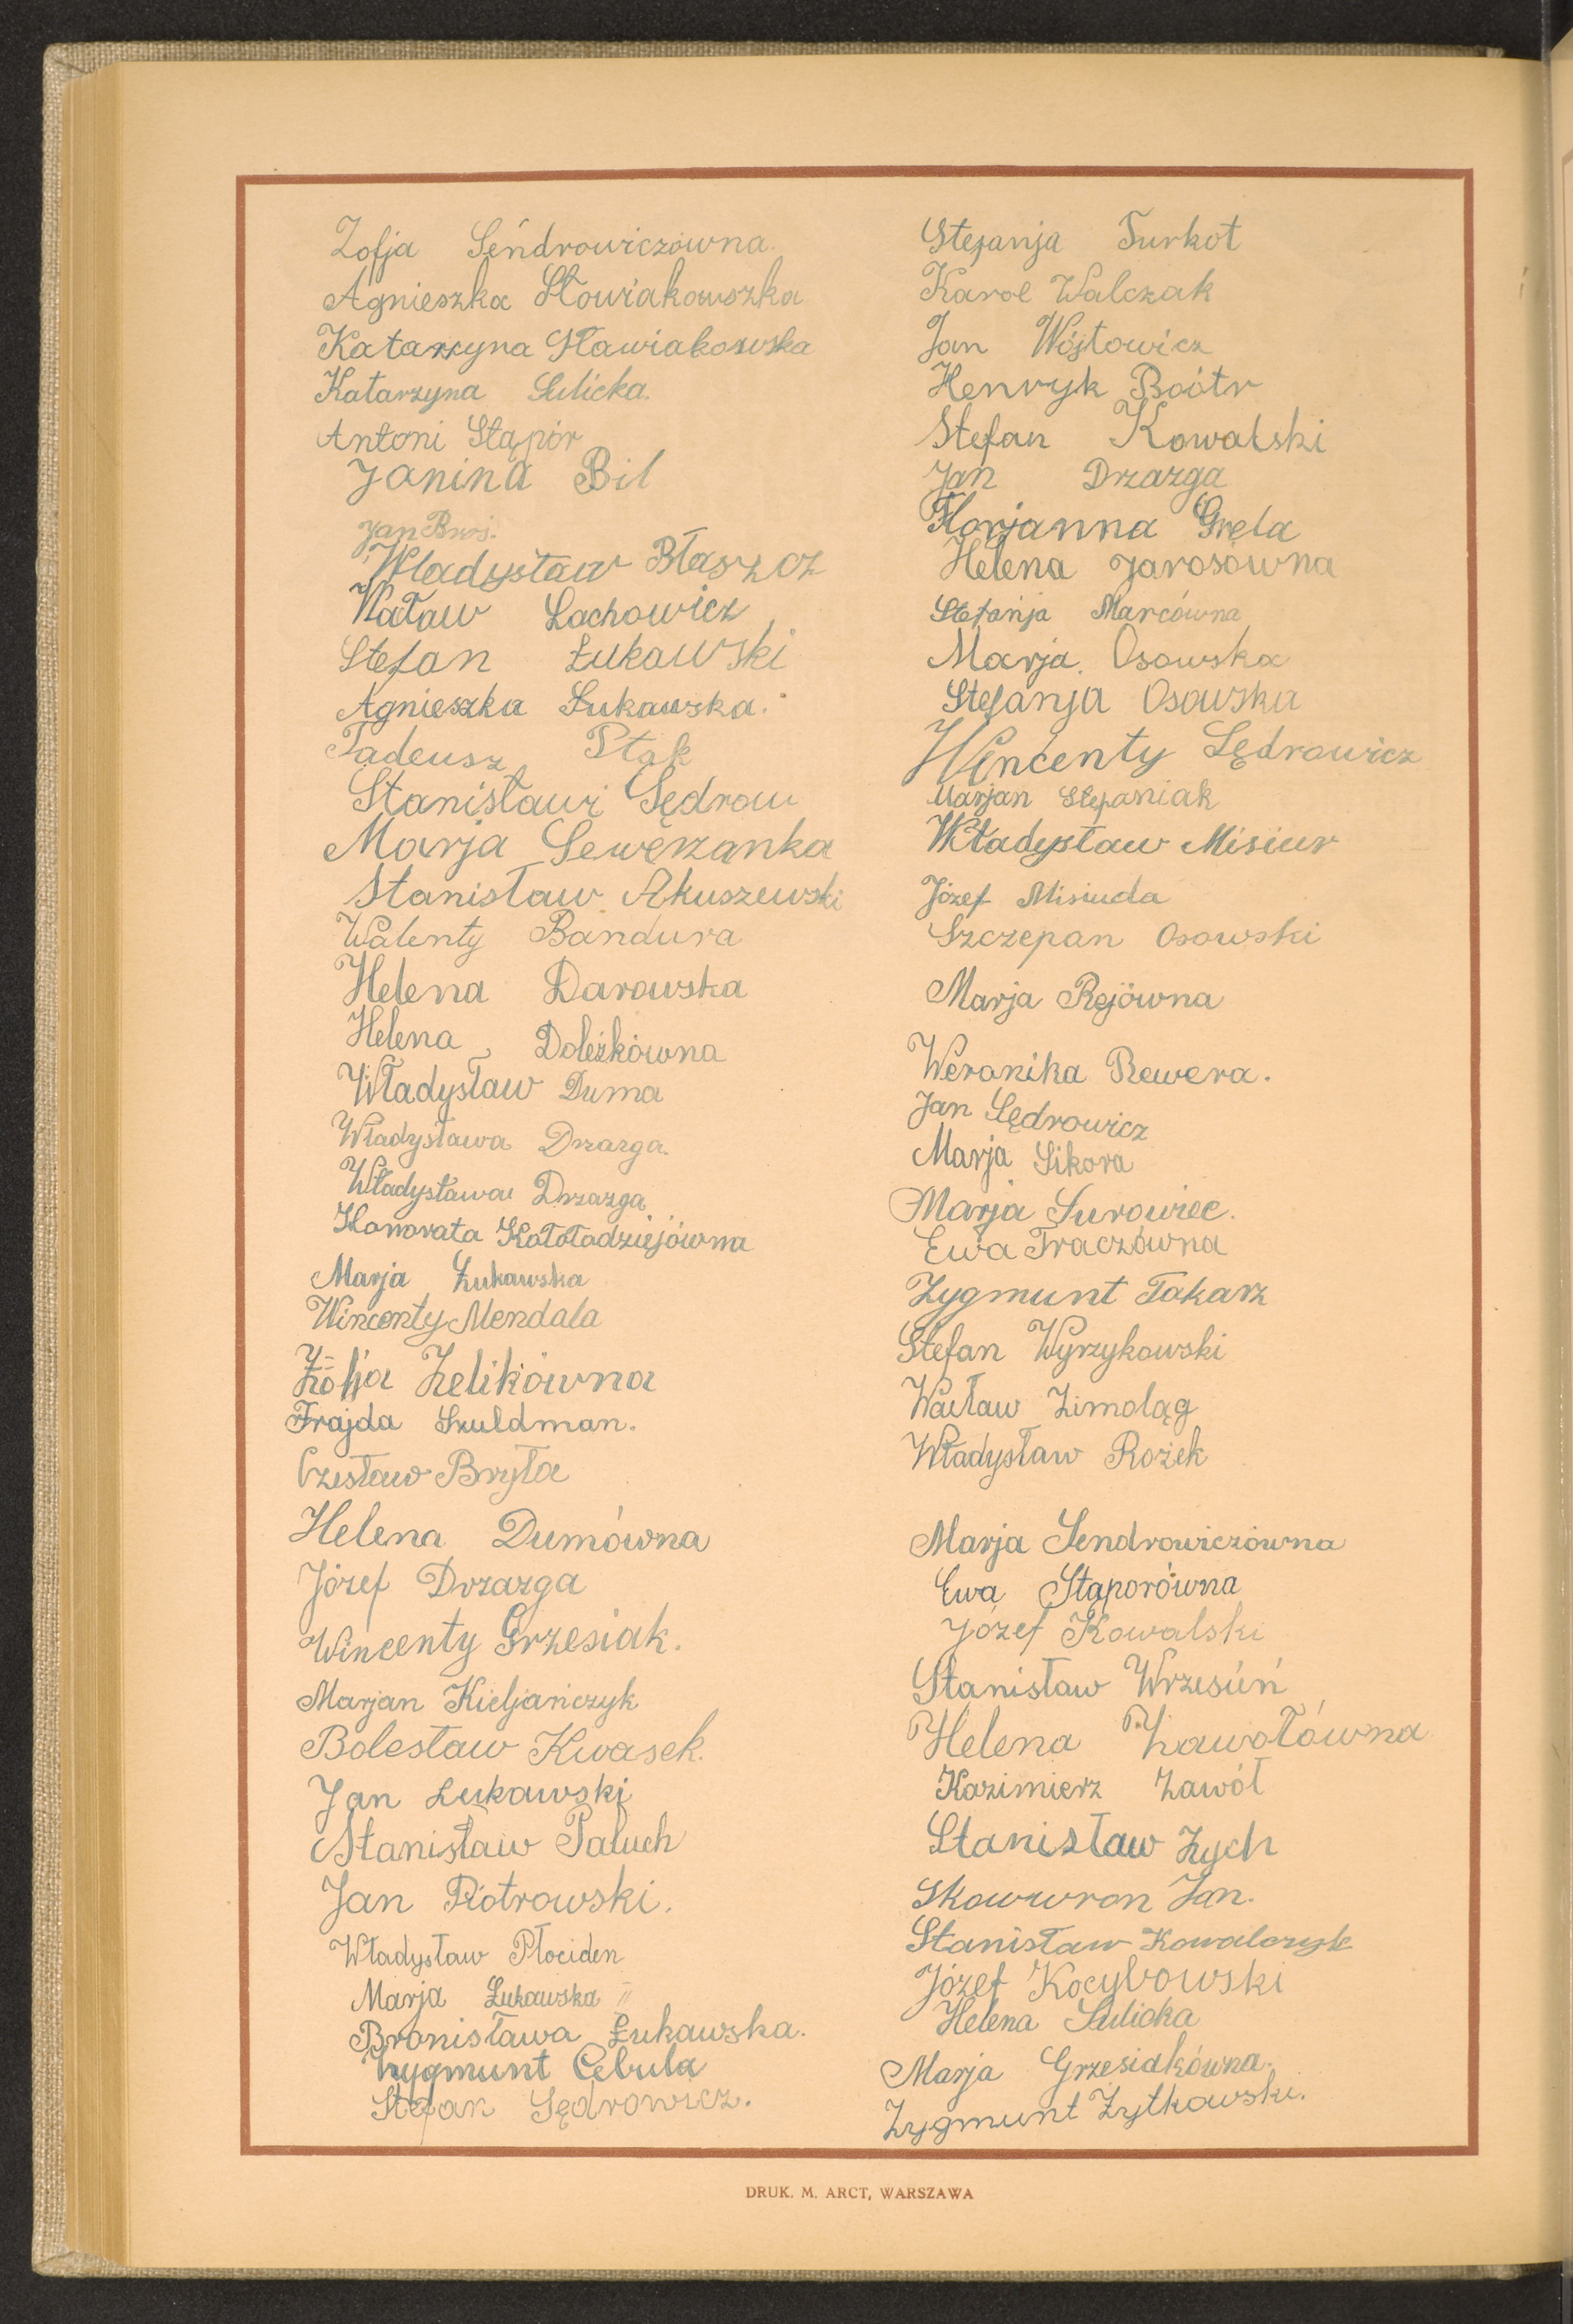 Zofja Sendrowiczówna.
Agnieszka Słowiakowszka
Katarzyna Sławiakowska
Katarzyna Sulicka.
Antoni Stąpór
Janina Bil
Jan
Władysław Błaszcz
Wacław Lachowicz
Stefan Łukawski
Agnieszka Łukawska.
Tadeusz Ptak
Stanisławi Sędrow
Marja Sewerzanka
Stanisław Akuszewski
Walenty Bandura
Helena Darowska
Helena Doleżkówna
Władysław Duma
Władysława Drzazga.
Władysława Drzazga
Honorata Kołotadziejówna
Marja Łukawska
Wincenty Mendala
Zofja Zelikówna
Frajda Szuldman.
Czesław Bryła
Helena Dumówna
Józef Drzazga
Wincenty Grzesiak.
Marjan Kieljańczyk
Bolesław Kwasek.
Jan Łukawski
Stanisław Paluch
Jan Piotrowski.
Władysław Płociden
Marja Łukawska II
Bronisława Łukawska.
Zygmunt Cebula
Stefan Sędrowicz.
Stefanja Turkot
Karol Walczak
Jan Wójtowicz
Henryk
Stefan Kowalski
Jan Drzazga
Florjanna Gręla
Helena Jarosówna
Stefanja Marcówna
Marja Osowska
Stefanja Osowska
Wincenty Sędrowicz
Marjan Stepaniak
Władysław Misiur
Józef Misiuda
Szczepan Osowski
Marja Rejówna
Weronika Rewera.
Jan Sędrowicz
Marja Sikora
Marja Surowiec.
Ewa Traczówna
Zygmunt Tokarz
Stefan Wyrzykowski
Wacław Zimoląg
Władysław Rożek
Marja Sendrowiczówna
Ewa Stąporówna
Józef Kowalski
Stanisław Wrzesiń
Helena Zawołówna
Kazimierz Zawół
Stanisław Zych
Skowron Jan.
Stanisław Kowalczyk
Józef Kocybowski
Helena Sulicka
Marja Grzesiakówna.
Zygmunt Żytkowski.
DRUK. M. ARCT, WARSZAWA